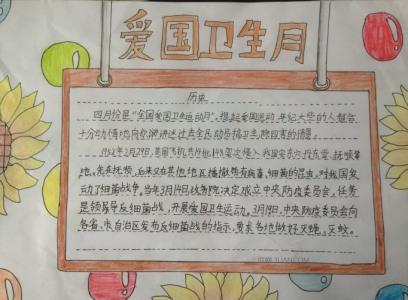 爱国卫生月
历史
四月份是“全国爱国卫生运动月”,提起爱国运动,年纪大些的人都会
十分动情地向你讲述过去全民动员搞卫生,除四害的情景。
1952年2月29日,美国飞机共14批,148架次侵入我国东北丹东、抚顺等
地。先在抚顺,后来又在其他地区播撒带有病毒、细菌的昆虫,对我国发
动了细菌战争。当年3月14日政务院决定成立中央防疫委员会,任务
是领导反细菌战,开展爱国卫生运动。3月19日,中央防疫委员会向
各省、市自治区发布反细菌战的指示,要求各地做好灭蝇、灭蚊。